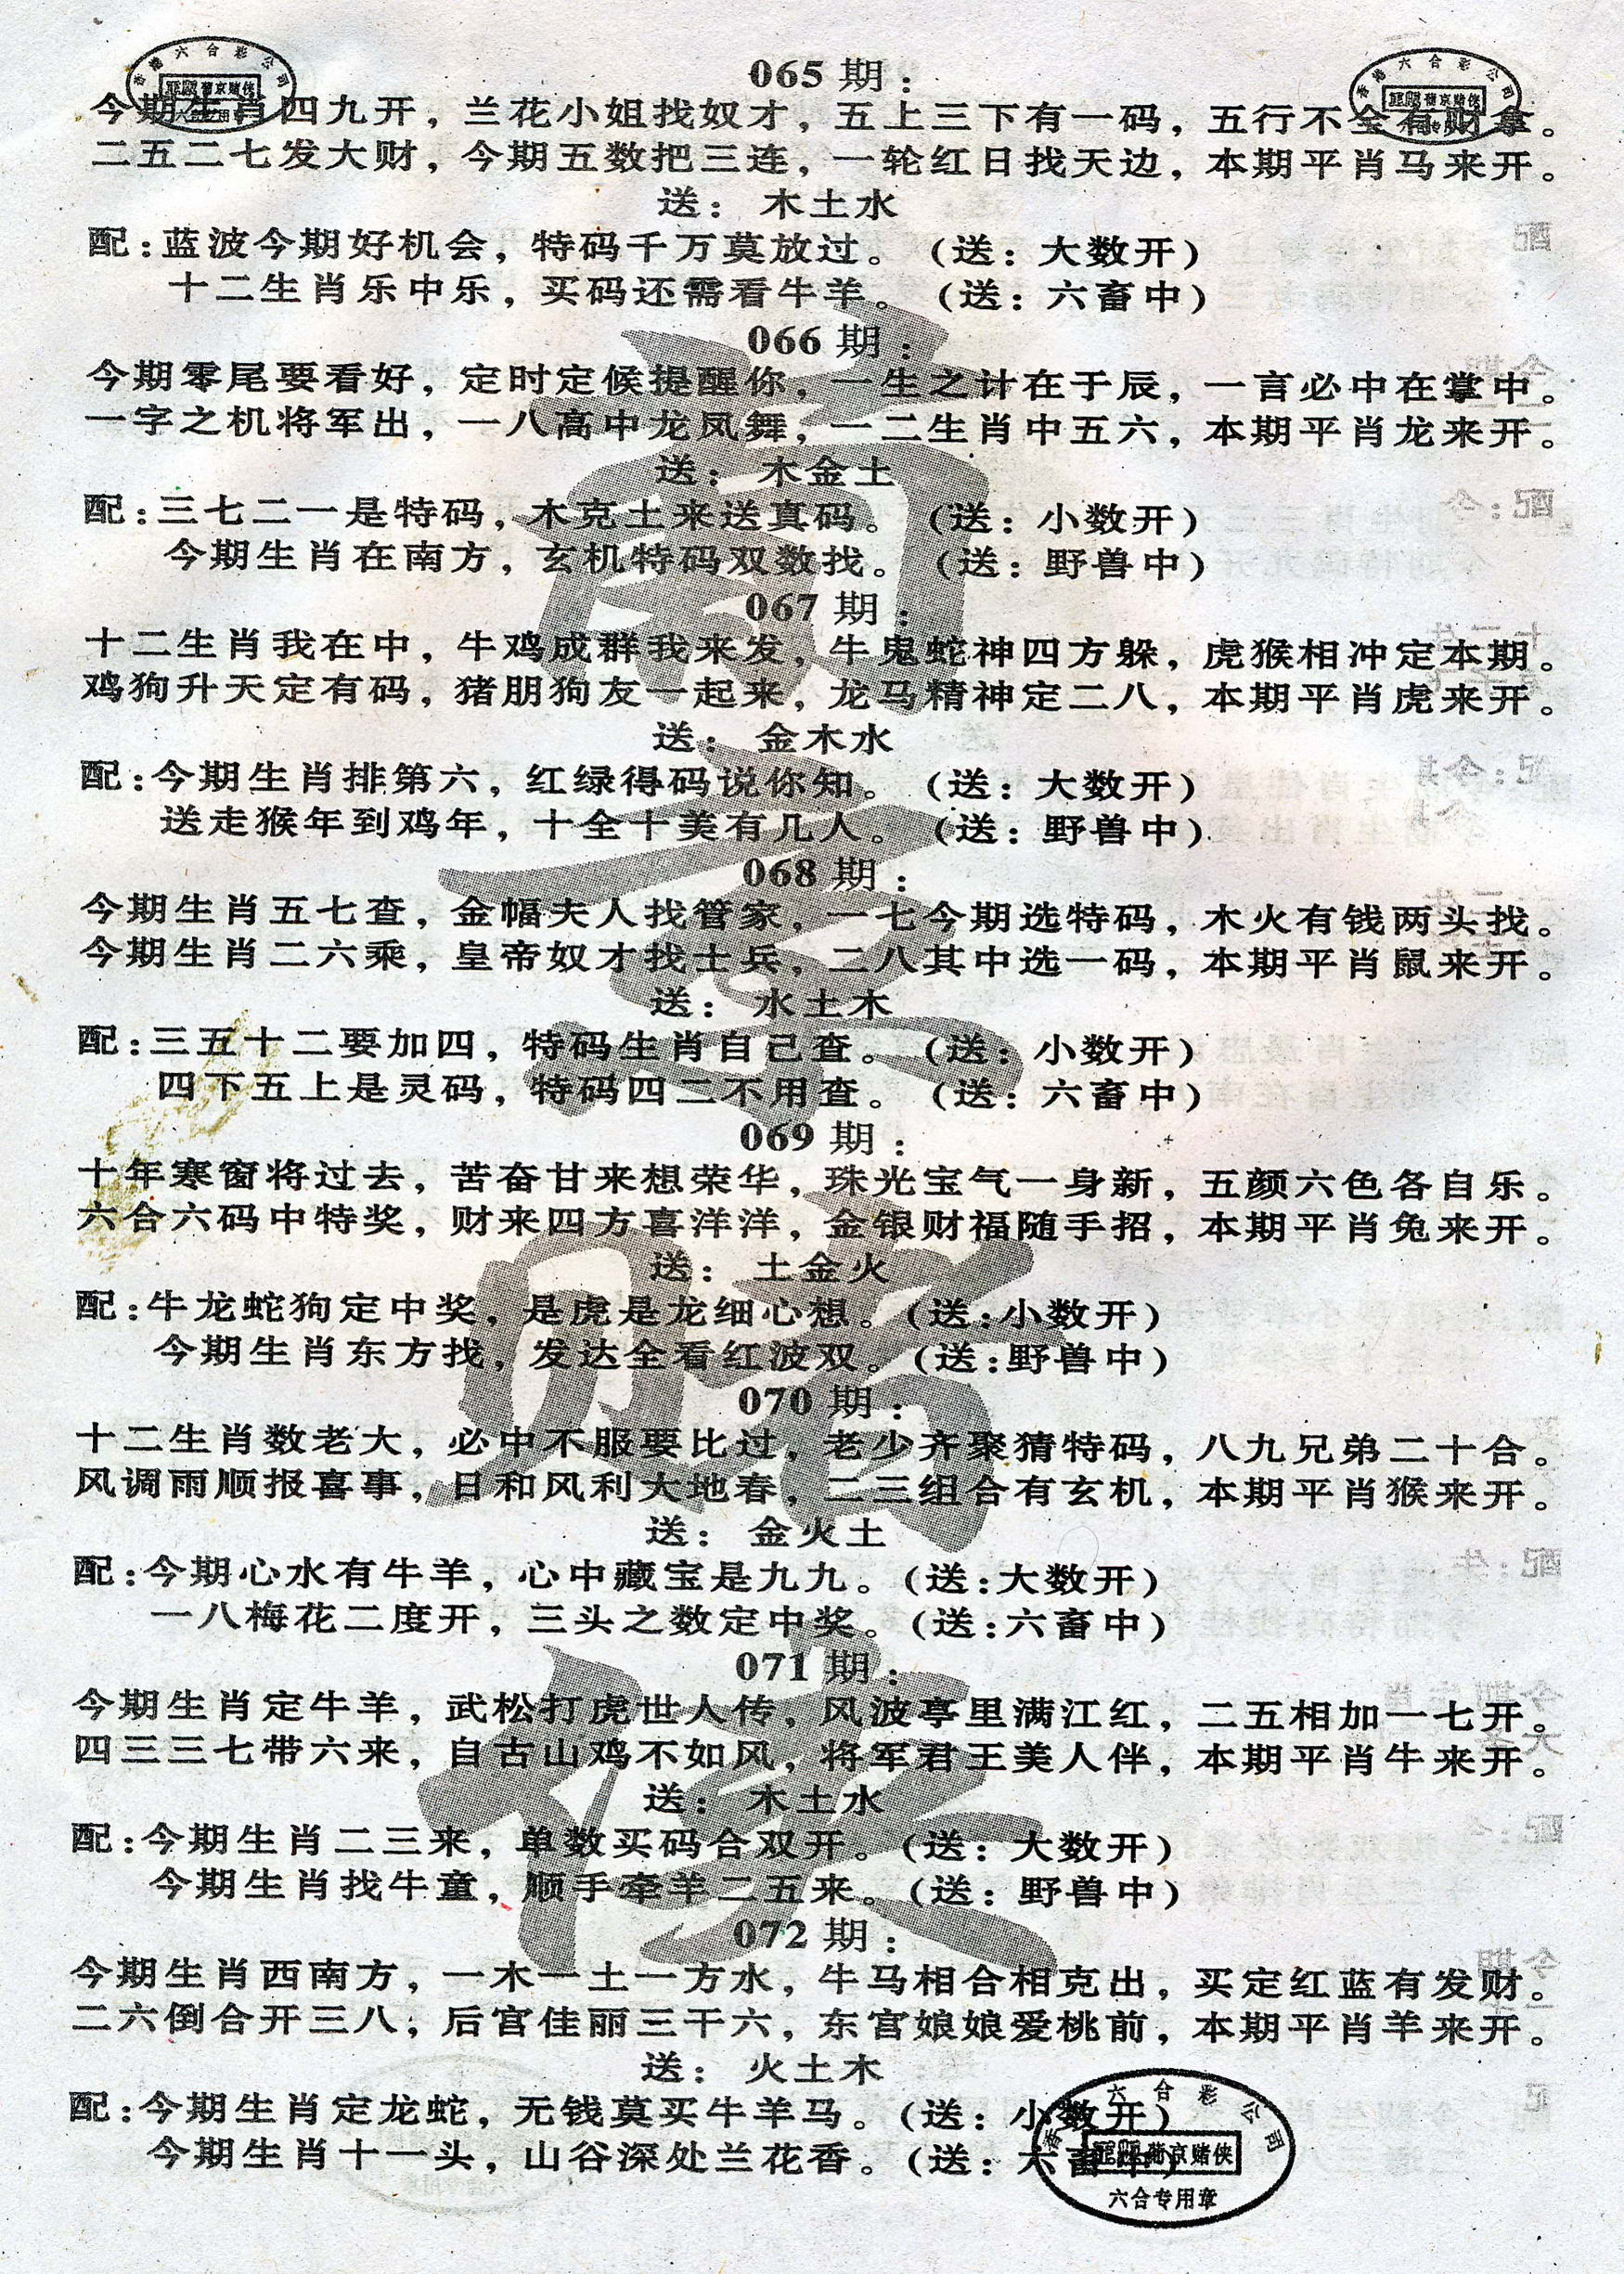 065期：
今期生肖四九开，兰花小姐找奴才，五上三下有一码，五行不全有财拿。
二五二七发大财，今期五数把三连，一轮红日找天边，本期平肖马来开。
送：木土水
配：蓝波今期好机会，特码千万莫放过。（送：大数开）
十二生肖乐中乐，买码还需看牛羊。（送：六畜中）
066期：
今期零尾要看好，定时定候提醒你，一生之计在于辰，一言必中在掌中。
一字之机将军出，一八高中龙凤舞，一二生肖中五六，本期平肖龙来开。
送：木金土
配：三七二一是特码，木克土来送真码。（送：小数开）
今期生肖在南方，玄机特码双数找。（送：野兽中）
067期：
十二生肖我在中，牛鸡成群我来发，牛鬼蛇神四方躲，虎猴相冲定本期。
鸡狗升天定有码，猪朋狗友一起来，龙马精神定二八，本期平肖虎来开。
送：金木水
配：今期生肖排第六，红绿得码说你知。（送：大数开）
送走猴年到鸡年，十全十美有几人。（送：野兽中）
068期：
今期生肖五七查，金幅夫人找管家，一七今期选特码，木火有钱两头找。
今期生肖二六乘，皇帝奴才找士兵，二八其中选一码，本期平肖鼠来开。
送：水土木
配：三五十二要加四，特码生肖自己查。（送：小数开）
四下五上是灵码，特码四二不用查。（送：六畜中）
069期：
十年寒窗将过去，苦奋甘来想荣华，珠光宝气一身新，五颜六色各自乐。
六合六码中特奖，财来四方喜洋洋，金银财福随手招，本期平肖兔来开。
送：土金火
配：牛龙蛇狗定中奖，是虎是龙细心想。（送：小数开）
今期生肖东方找，发达全看红波双。（送：野兽中）
070期：
十二生肖数老大，必中不服要比过，老少齐聚猜特码，八九兄弟二十合。
风调雨顺报喜事，日和风利大地春，二三组合有玄机，本期平肖猴来开。
送：金火土
配：今期心水有牛羊，心中藏宝是九九。（送：大数开）
一八梅花二度开，三头之数定中奖。（送：六畜中）
071期：
今期生肖定牛羊，武松打虎世人传，风波亭里满江红，二五相加一七开。
四三三七带六来，自古山鸡不如风，将军君王美人伴，本期平肖牛来开。
送：木土水
配：今期生肖二三来，单数买码合双开。（送：大数开）
今期生肖找牛童，顺手牵羊二五来。（送：野兽中）
072期：
今期生肖西南方，一木一土一方水，牛马相合相克出，买定红蓝有发财。
二六倒合开三八，后宫佳丽三千六，东宫娘娘爱桃前，本期平肖羊来开。
送：火土木
配：今期生肖定龙蛇，无钱莫买牛羊马。（送：小数开）
今期生肖十一头，山谷深处兰花香。（送：六畜中）
香港六合彩公司
葡京赌侠
六合专用章